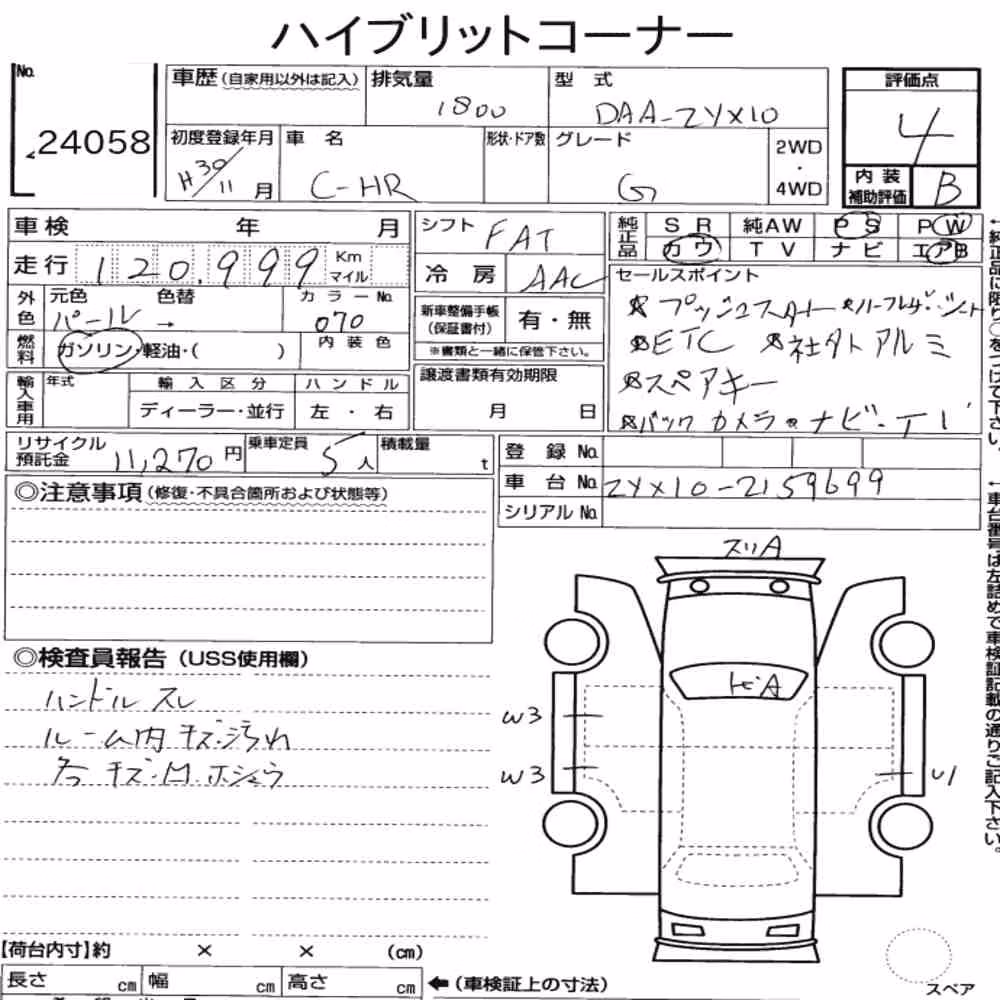 ハイブリットコーナー
No. 24058
車歴(自家用以外は記入) 排気量 1800 型 式 DAA-ZYX10 評価点 4
初度登録年月 H30/11 月 車 名 C-HR 形状・ドア数 グレード G 2WD・4WD 内装補助評価 B
車検 年 月 シフト FAT 純正品 SR 純AW PS PW
カワ TV ナビ エアB
走行 120,999 Km マイル 冷房 AAC
セールスポイント
☆プッシュスタート ☆ハーフレザーシート
☆ETC ☆社外アルミ
☆スペアキー
☆バックカメラ ☆ナビ・TV
外色 元色 パール → 色替 カラーNo. 070 内装色
新車整備手帳(保証書付) 有・無
※書類と一緒に保管下さい。
燃料 ガソリン・軽油・( )
譲渡書類有効期限 月 日
輸入車用 年式 輸入区分 ハンドル
ディーラー・並行 左・右
リサイクル預託金 11,270円 乗車定員 5人 積載量 t
登録 No.
車台 No. ZYX10-2159699
シリアル No.
◎注意事項(修復・不具合箇所および状態等)
◎検査員報告(USS使用欄)
ハンドルスレ
ルーム内キズ・汚れ
各キズ・凹・ホシュウ
スリA
トビA
W3
W3
U1
【荷台内寸】約 × × (cm)
長さ cm 幅 cm 高さ cm ←(車検証上の寸法)
スペア
←純正品に限り○をつけて下さい。
←車台番号は左詰めで車検証記載の通りご記入下さい。